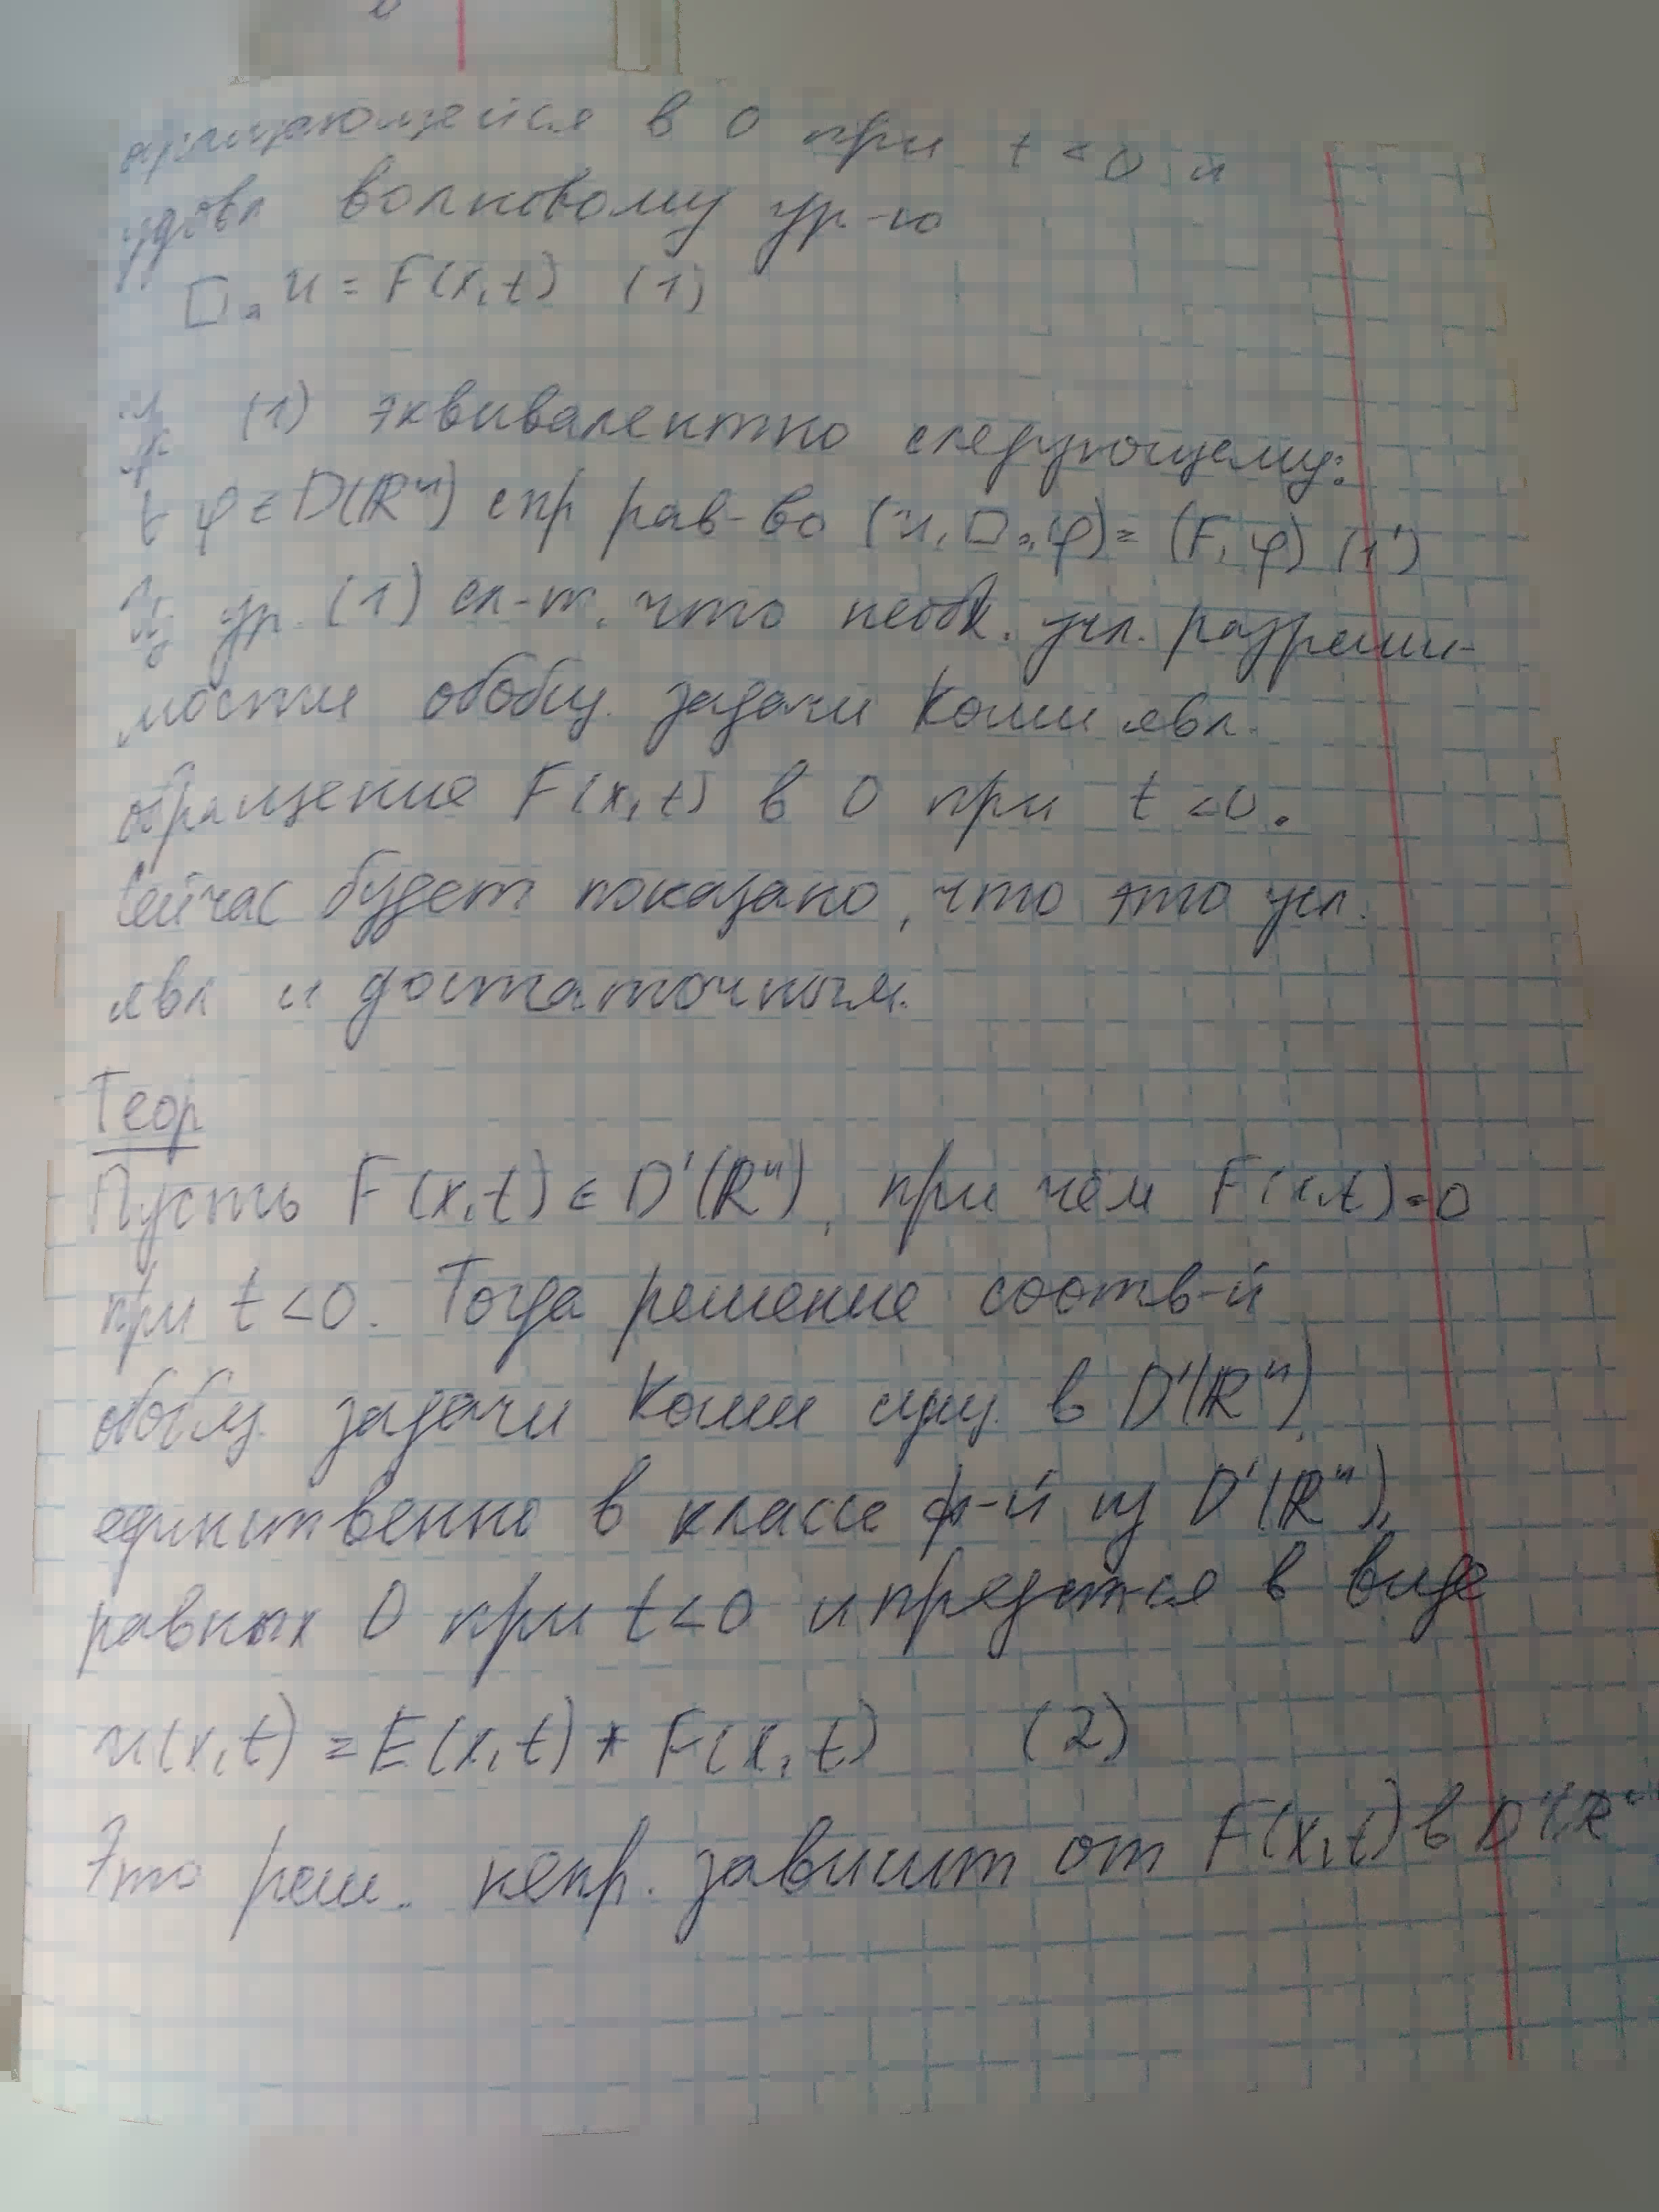 обращающейся в 0 при t < 0 и
удовл волновому ур-ю
□ₐ u = F(x,t) (1)
Ур (1) эквивалентно следующему:
∀ φ ∈ D(ℝⁿ) спр рав-во (u, □ₐφ) = (F, φ) (1')
Из ур. (1) сл-т, что необх. усл. разреши-
мости обобщ. задачи Коши явл.
обращение F(x,t) в 0 при t < 0.
Сейчас будет показано, что это усл.
явл и достаточным.
Теор
Пусть F(x,t) ∈ D'(ℝⁿ), при чём F(x,t) = 0
при t < 0. Тогда решение соотв-й
обобщ. задачи Коши сущ. в D'(ℝⁿ),
единственно в классе ф-й из D'(ℝⁿ),
равных 0 при t < 0 и предст-ся в виде
u(x,t) = E(x,t) * F(x,t) (2)
Это реш. непр. зависит от F(x,t) в D'(ℝ